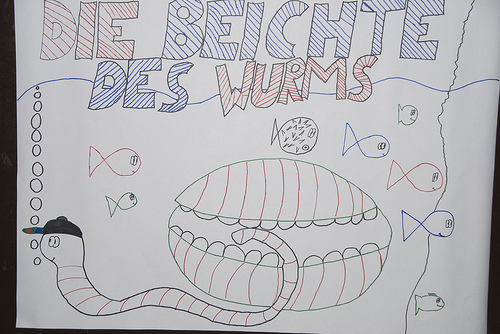 DIE BEICHTE
DES WURMS